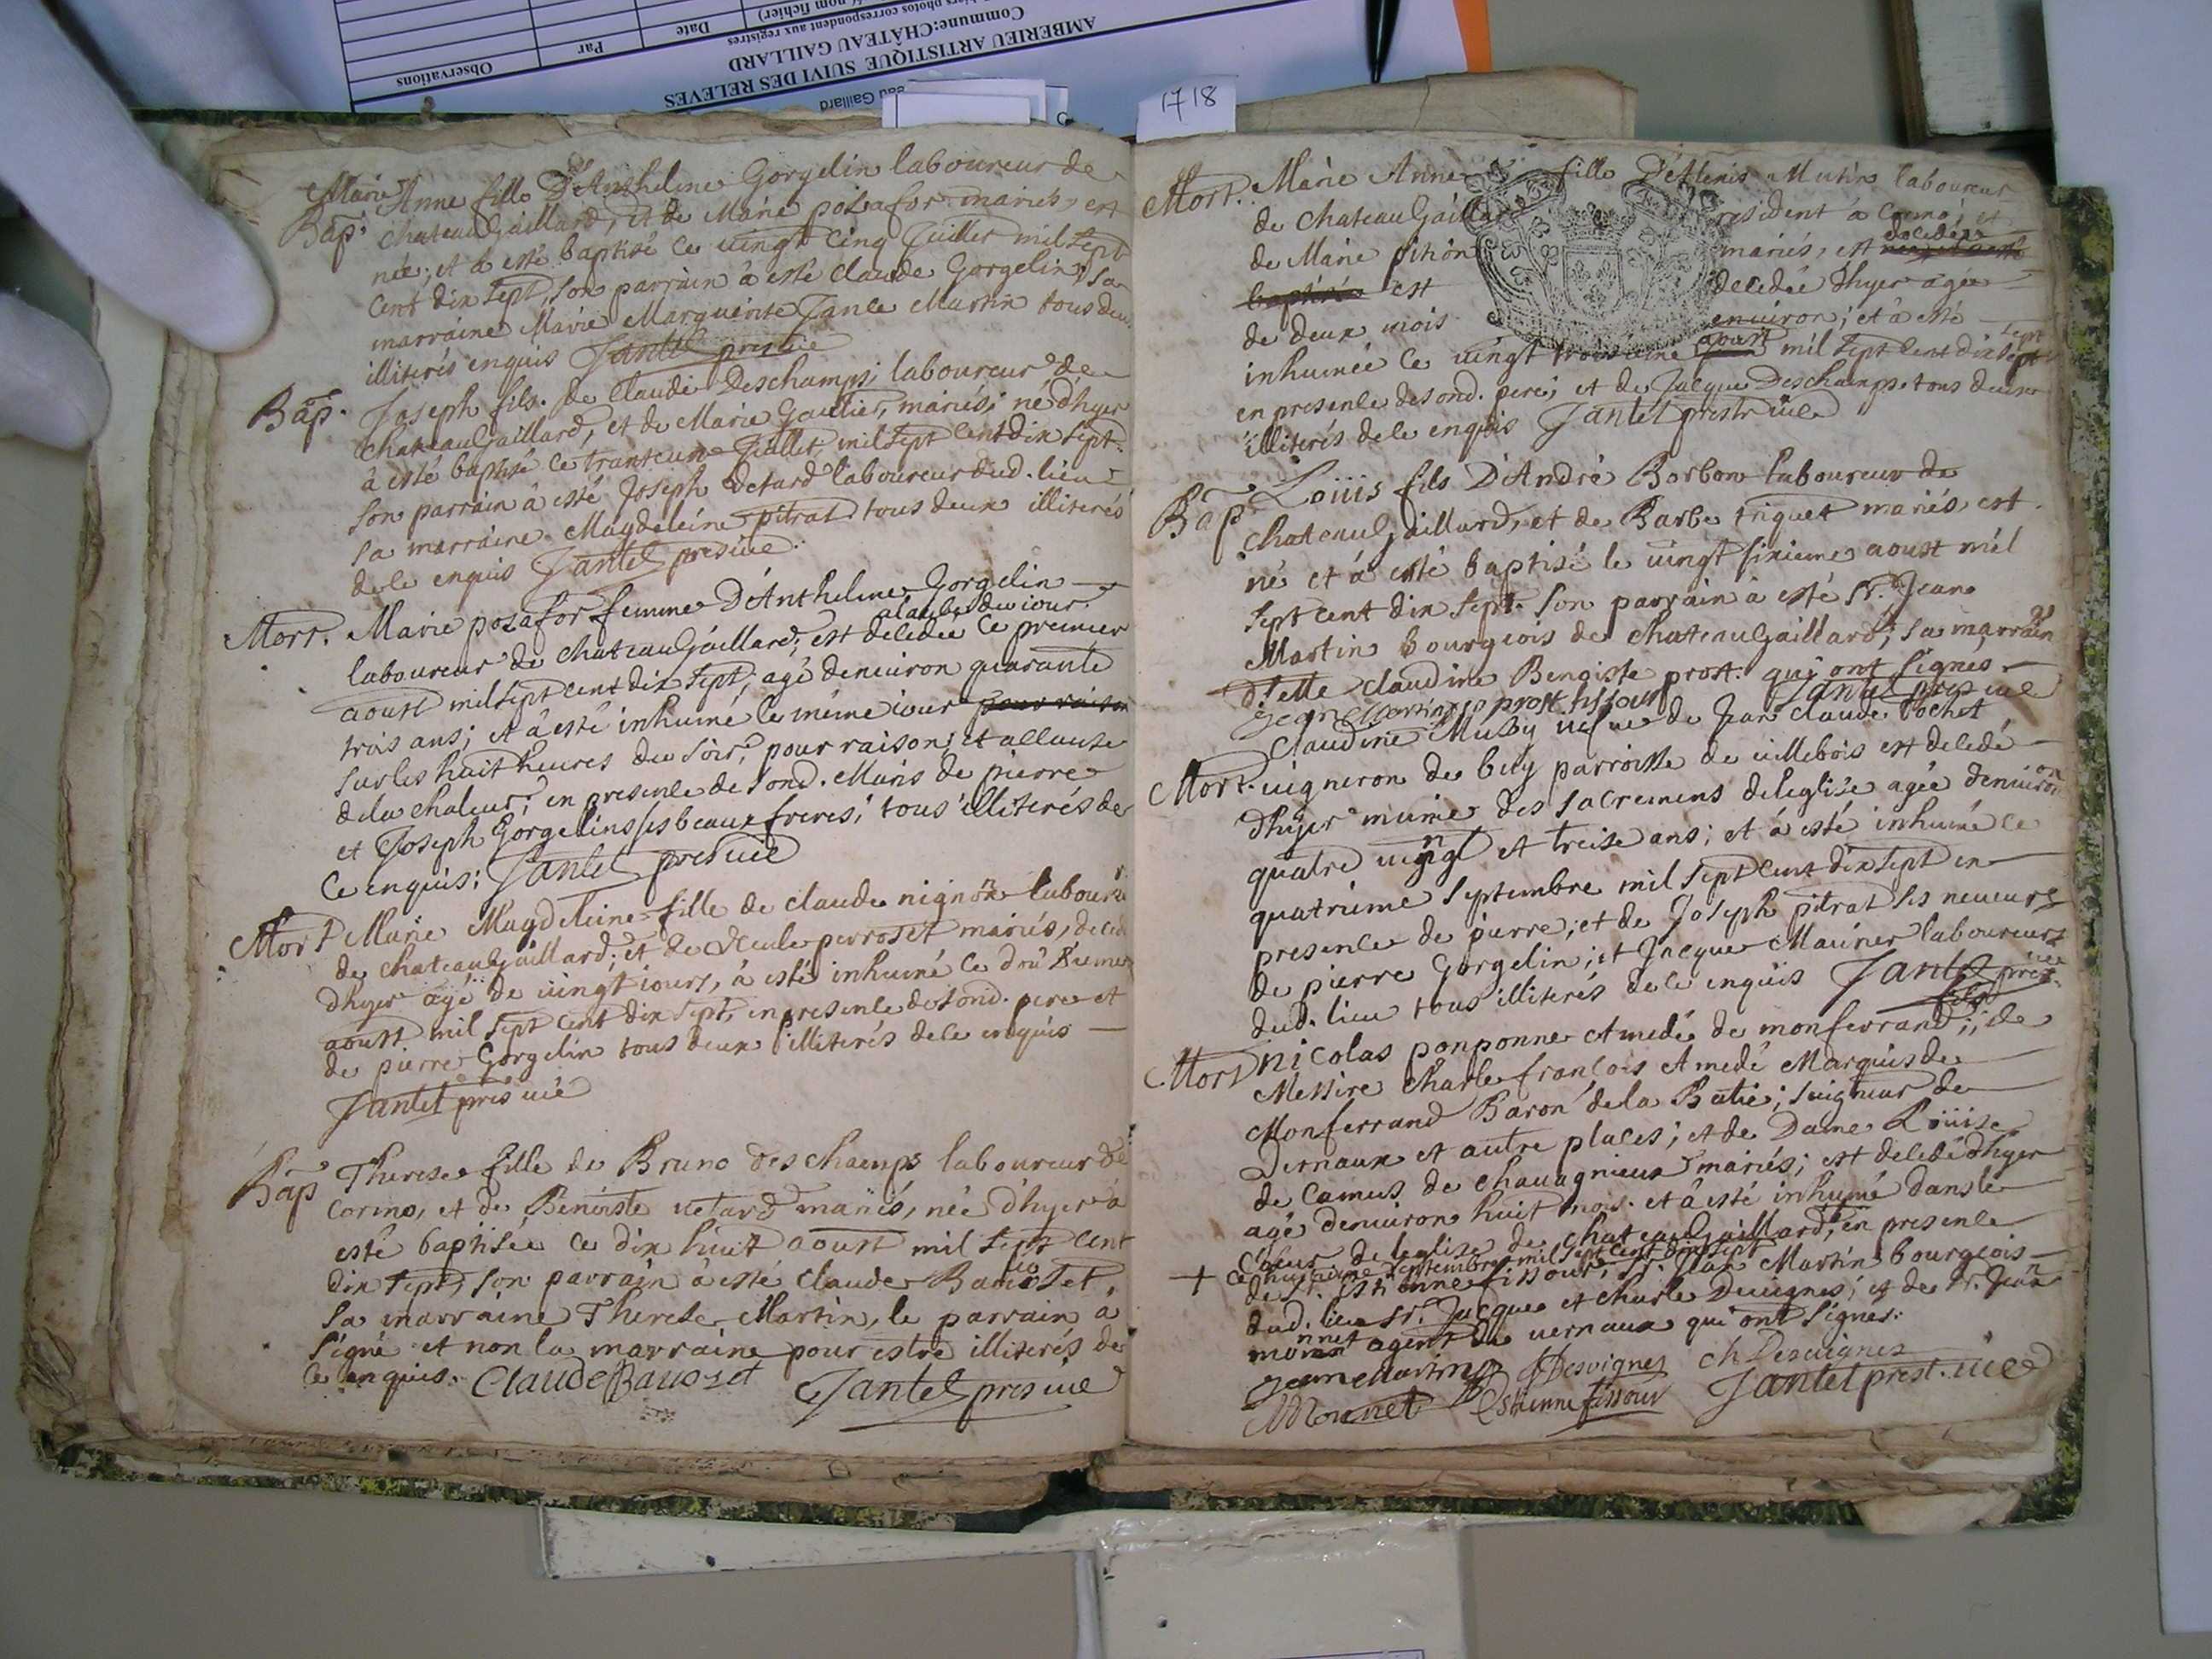 Observations
Par
Date
AMBERIEU ARTISTIQUE SUIVI DES RELEVES
Commune:CHÂTEAU GAILLARD
photos correspondent aux registres
nom fichier)
Gaillard
1718
Marie Anne fille D'Anthelme Gorgelin laboureur de
Bap. chateauGaillard, et de Marie posafor mariés, est
née, et à esté baptisé ce vingt cinq Juillet mil sept
cent dix sept, son parrain à esté claude Gorgelin, sa
marraine Marie Marguerite Martin tous deux
illiterés enquis Jantet pres vic
Bap. Joseph fils de Claude Deschamps, laboureur de
chateauGaillard, et de Marie Gautier, mariés, né d'hyer
à esté baptisé ce Juillet mil sept cent dix sept
son parrain à esté Joseph Vetard laboureur dud. lieu
sa marraine Magdeleine pitrat tous deux illiterés
de ce enquis Jantet pres vic
Mort. Marie posafor femme D'Anthelme Gorgelin
du iour
laboureur de chateauGaillard, est decedée ce premier
aoust mil sept cent dix sept, agé denuiron quarante
trois ans; et à esté inhumé le méme iour pour raison
sur les huit heures du soir, pour raison, et
de la chaleur; en presence de sond. Maris de pierre
et Joseph Gorgelins ses beaux freres, tous illiterés de
ce enquis: Jantet pres vic
Mort Marie Magdeleine fille de claude nignon labour
de chateauGaillard; et de perroset mariés, decedé
dhyer agé de vingt iours, à esté inhumé ce
aoust mil sept cent dix sept, en presence de sond. pere et
de pierre Gorgelin tous deux illiterés de ce enquis
Jantet pres vic
Bap Therese fille de Bruno deschamps laboureur de
Cormo, et de Benoiste vetard mariés, née d'hyer à
esté baptisée ce dix huit aoust mil sept cent
dix sept, son parrain à esté claude Bauoset,
sa marraine Therese Martin, le parrain à
signé et non la marraine pour estre illiterés de
ce enquis. Claude Bauoset Jantet pres vic
Mort. Marie Anne fille D'Alexis Mutin laboureur
de chateauGaillard resident à Cormo; et
decedée
de Marie pithon mariés, est
baptisée est decedée d'hyer agée
de deux mois enuiron; et à esté
inhumée ce vingt troisieme aoust mil sept cent dix sept
en presence de sond. pere; et de Jacque Deschamps tous deux
illiterés de ce enquis Jantet prestr vic
Bap Loüis fils D'André Borbon laboureur de
chateauGaillard, et de Barbe triquet mariés est
né et à esté baptisé le vingt sixieme aoust mil
sept cent dix sept. son parrain à esté Sr. Jean
Martin bourgeois de chateauGaillard; sa marraine
Claudine Benoiste prost. qui ont signés
Jean Martin prost fissour Jantet pres vic
Claudine vefue de Jean claude Pochet
Mort. vigneron de buy parroisse de villebois est decedé
dhyer munie des sacremens de l'eglise agée denuiron
quatre vingt et treise ans; et à esté inhumé ce
quatriéme septembre mil sept cent dix sept en
presence de pierre; et de Joseph pitrat ses neueurs
de pierre Gorgelin; et Jacque laboureurs
dud. lieu tous illiterés de ce enquis Jantet pres vic
fils
Mort nicolas ponponne Amedé de monferrand; de
Messire charle françois Amedé Marquis de
Monferrand Baron de la Batie; seigneur de
Vernaux et autre places; et de Dame Loüise
de Camus de chauagnieux mariés; est decedé d'hyer
agé denuiron huit mois. et à esté inhumé dans le
de l'eglise de chateauGaillard, en presence
+ ce septembre mil sept cent dix sept
de Sr. Estienne fissour, Sr. Jean Martin bourgeois
dud. lieu Sr. Jacque et charle Deuignes; et de Sr. Jean
monnet agent de vernaux qui ont signes.
Jean Martin JDesvignes ch Desuignes
Monnet Estienne fissour Jantet prest. vic